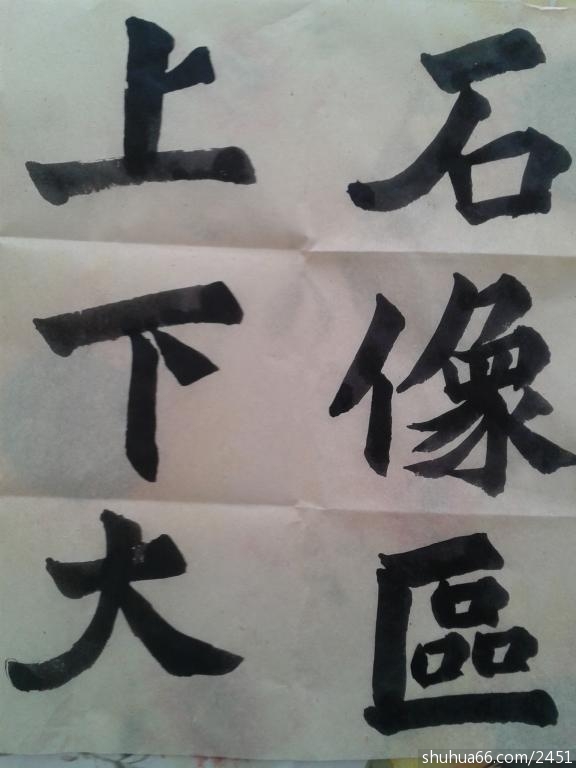 石像區
上下大
shuhua66.com/2451